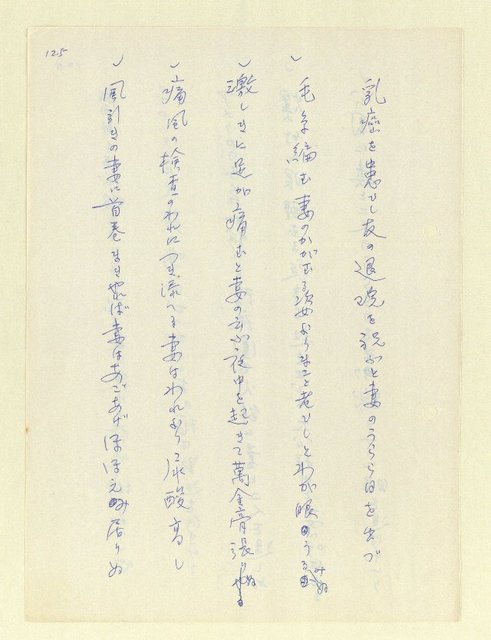 125
乳癌を患ひし友の退院を祝ふと妻のうらら日を出づ
毛糸編む妻のかがむる姿よりまこと老ひしとわが眼うるみぬ
激しきに足が痛むと妻の云ふ夜中を起きて萬金膏張りぬ
痛風の検査のわれにつき添へる妻はわれより尿酸高し
風引きの妻に首巻まきやれば妻はあごあげほほえみ居りぬ